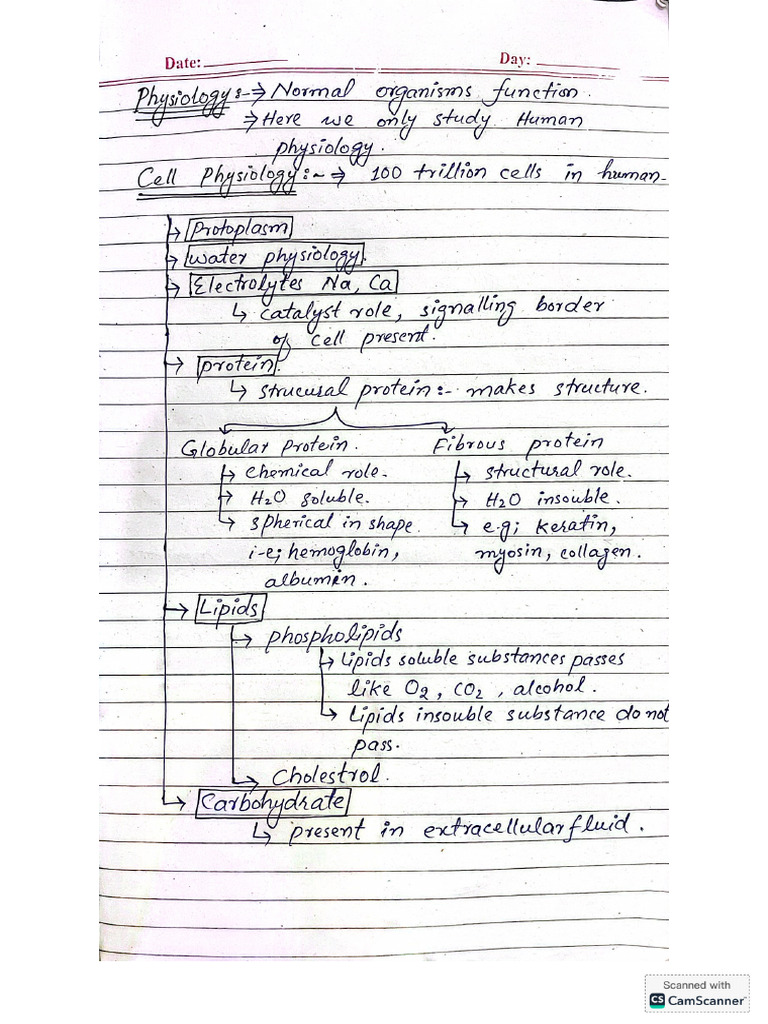 Date: Day:
Physiology:-→ Normal organisms function.
⇒ Here we only study Human
physiology.
Cell Physiology:~ ⇒ 100 trillion cells in human-
→ Protoplasm
→ Water physiology.
→ Electrolytes Na, Ca
↳ catalyst role, signalling border
of cell present.
→ protein.
↳ strucusal protein:- makes structure.
Globular Protein. Fibrous protein
→ chemical role. → structural role.
→ H2O soluble. → H2O insouble.
↳ spherical in shape ↳ e.g; keratin,
i-e; hemoglobin, myosin, collagen.
albumin.
→ Lipids
→ phospholipids
→ Lipids soluble substances passes
like O2, CO2, alcohol.
↳ Lipids insouble substance do not
pass.
→ Cholestrol.
↳ Carbohydrate
↳ present in extracellular fluid.
Scanned with
CS CamScanner